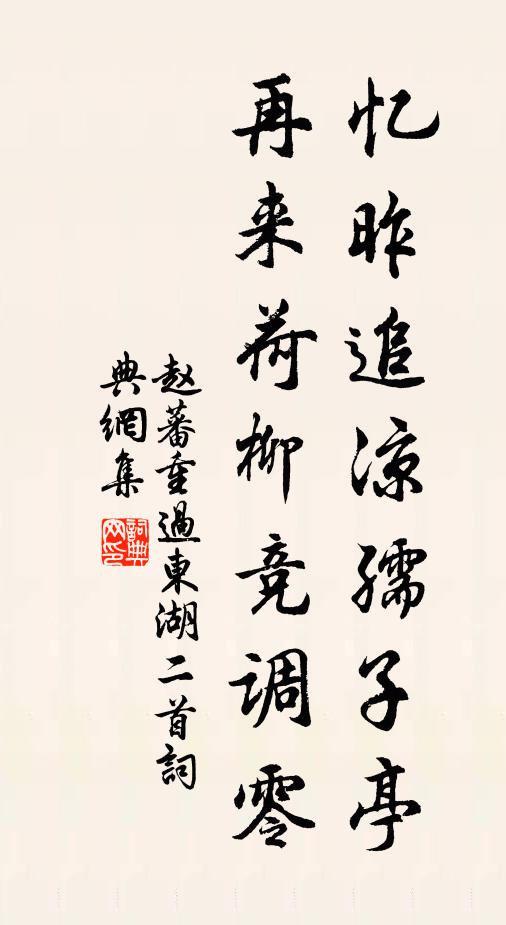 忆昨追凉孺子亭
再来荷柳竞调零
赵蕃重過東湖二首詞
典網集
詞典网印